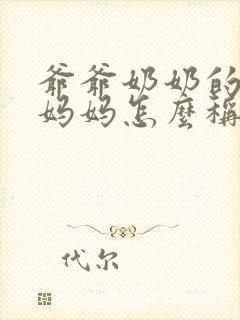 爷爷奶奶的
妈妈怎麼稱
代尔